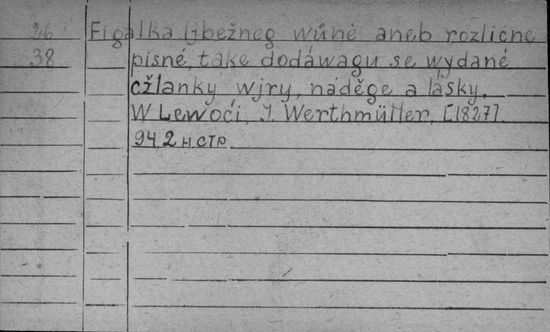 26 Figalka ljbežneg wůnė aneb rozličnė
38 pisné, take dodáwagu se wydané
čžlanky wjry, náděge a lásky.
W Lewoči, J. Werthmüller, [1827].
94,2 н стр.